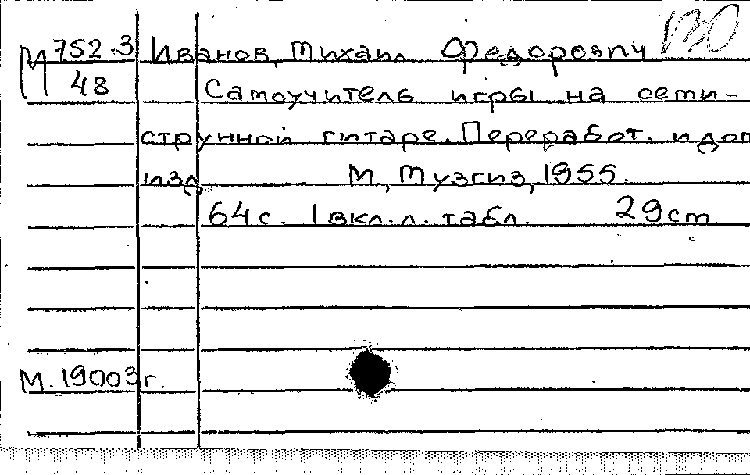 М 752.3 Иванов, Михаил Федорович 130
48 Самоучитель игры на семи-
струнной гитаре. Переработ. и доп
изд М., Музгиз, 1955.
64 с. 1 вкл. л. табл. 29 cm
М. 19003 г.